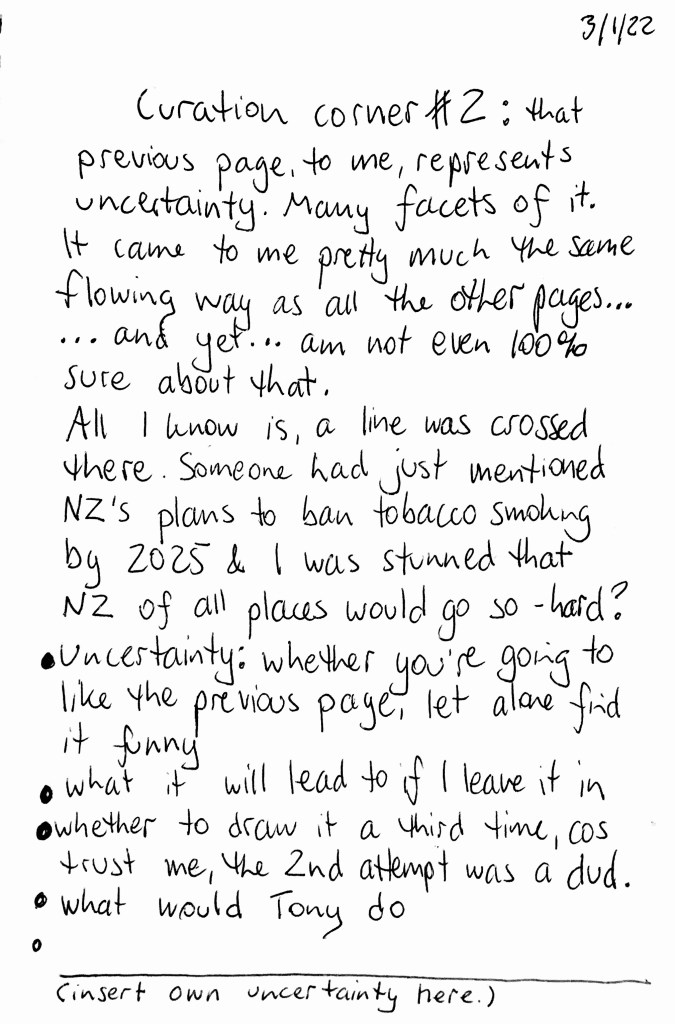 3/1/22
Curation corner #2: that
previous page, to me, represents
uncertainty. Many facets of it.
It came to me pretty much the same
flowing way as all the other pages...
... and yet... am not even 100%
sure about that.
All I know is, a line was crossed
there. Someone had just mentioned
NZ's plans to ban tobacco smoking
by 2025 & I was stunned that
NZ of all places would go so-hard?
• Uncertainty: whether you're going to
like the previous page, let alone find
it funny
• what it will lead to if I leave it in
• whether to draw it a third time, cos
trust me, the 2nd attempt was a dud.
• what would Tony do
•
(insert own uncertainty here.)